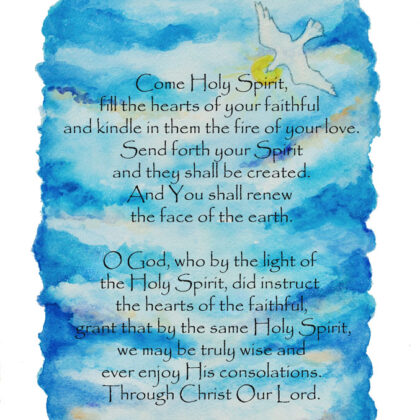 Come Holy Spirit,
fill the hearts of your faithful
and kindle in them the fire of your love.
Send forth your Spirit
and they shall be created.
And You shall renew
the face of the earth.
O God, who by the light of
the Holy Spirit, did instruct
the hearts of the faithful,
grant that by the same Holy Spirit,
we may be truly wise and
ever enjoy His consolations.
Through Christ Our Lord.